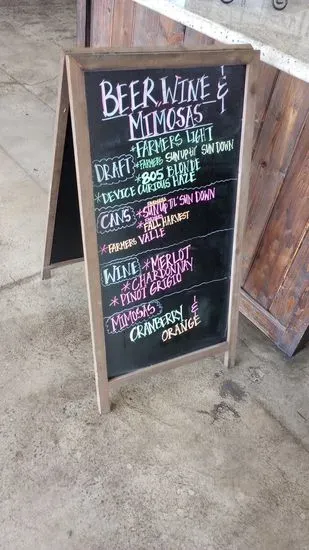 BEER, WINE &
MIMOSAS
DRAFT
*FARMERS LIGHT
*FARMERS SUN UP til' SUN DOWN
*805 BLONDE
*DEVICE CURIOUS HAZE
CANS
FARMERS
*SUN UP TIL' SUN DOWN
FALL HARVEST
*FARMERS VALLE
WINE
*MERLOT
*CHARDONNAY
*PINOT GRIGIO
MIMOSAS
CRANBERRY &
ORANGE